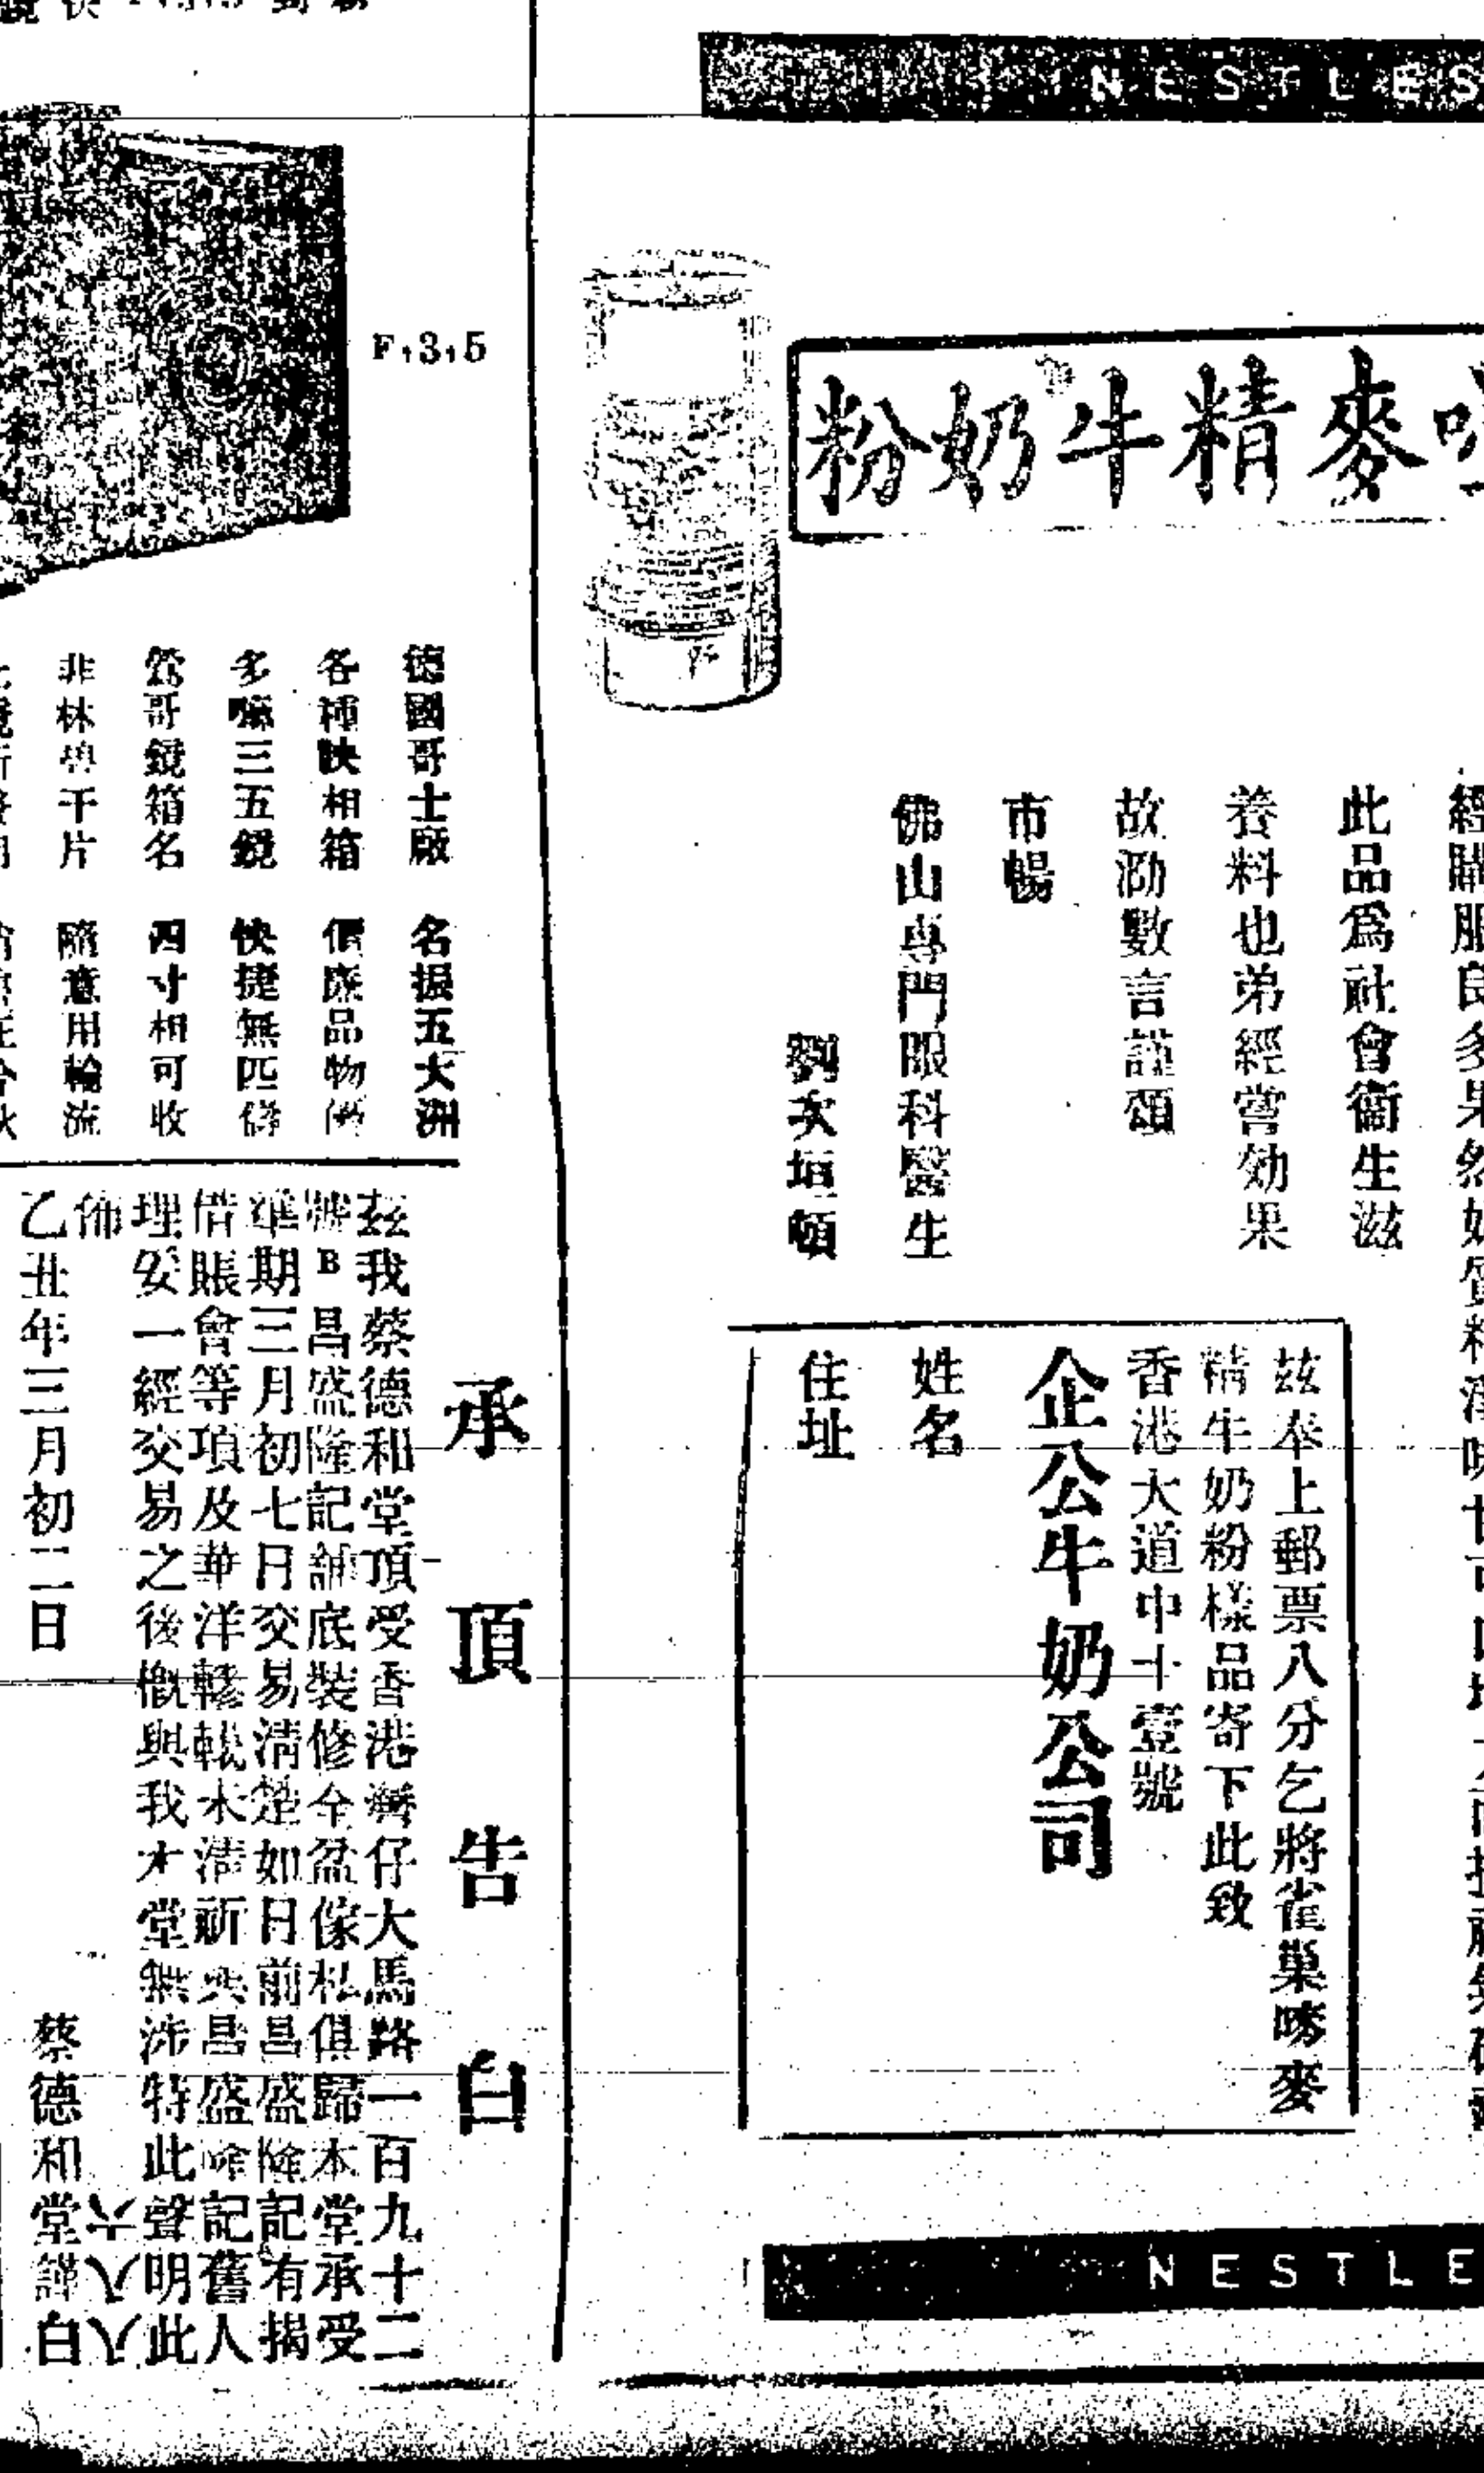 NESTLES
麥精牛奶粉
此品爲社會衞生滋
養料也弟經嘗効果
故泐數言謹頌
市暢
佛山專門眼科醫生
劉次垣頓
茲奉上郵票八分乞將雀巢嘜麥
精牛奶粉樣品寄下此致
香港大道中十壹號
企公牛奶公司
姓名
住址
NESTLE
F,3,5
德國哥士廠 名振五大洲
各種快相箱 價廉品物
多嚒三五鏡 快捷無匹儔
鴛哥鏡箱名 四寸相可收
非林碧干片 隨意用輪流
承頂告白
茲我蔡德和堂頂受香港灣仔大馬路一百九十二
號B昌盛隆記舖底裝修全盆傢私俱歸本堂承受
準期三月初七日交易清楚如日前昌盛隆記有揭
借賬會等項及華洋轇轕未淸祈與昌盛隆記舊人
理妥一經交易之後槪與我本堂無涉特此聲明此
佈
六八八
乙丑年三月初二日 蔡德和堂謹白